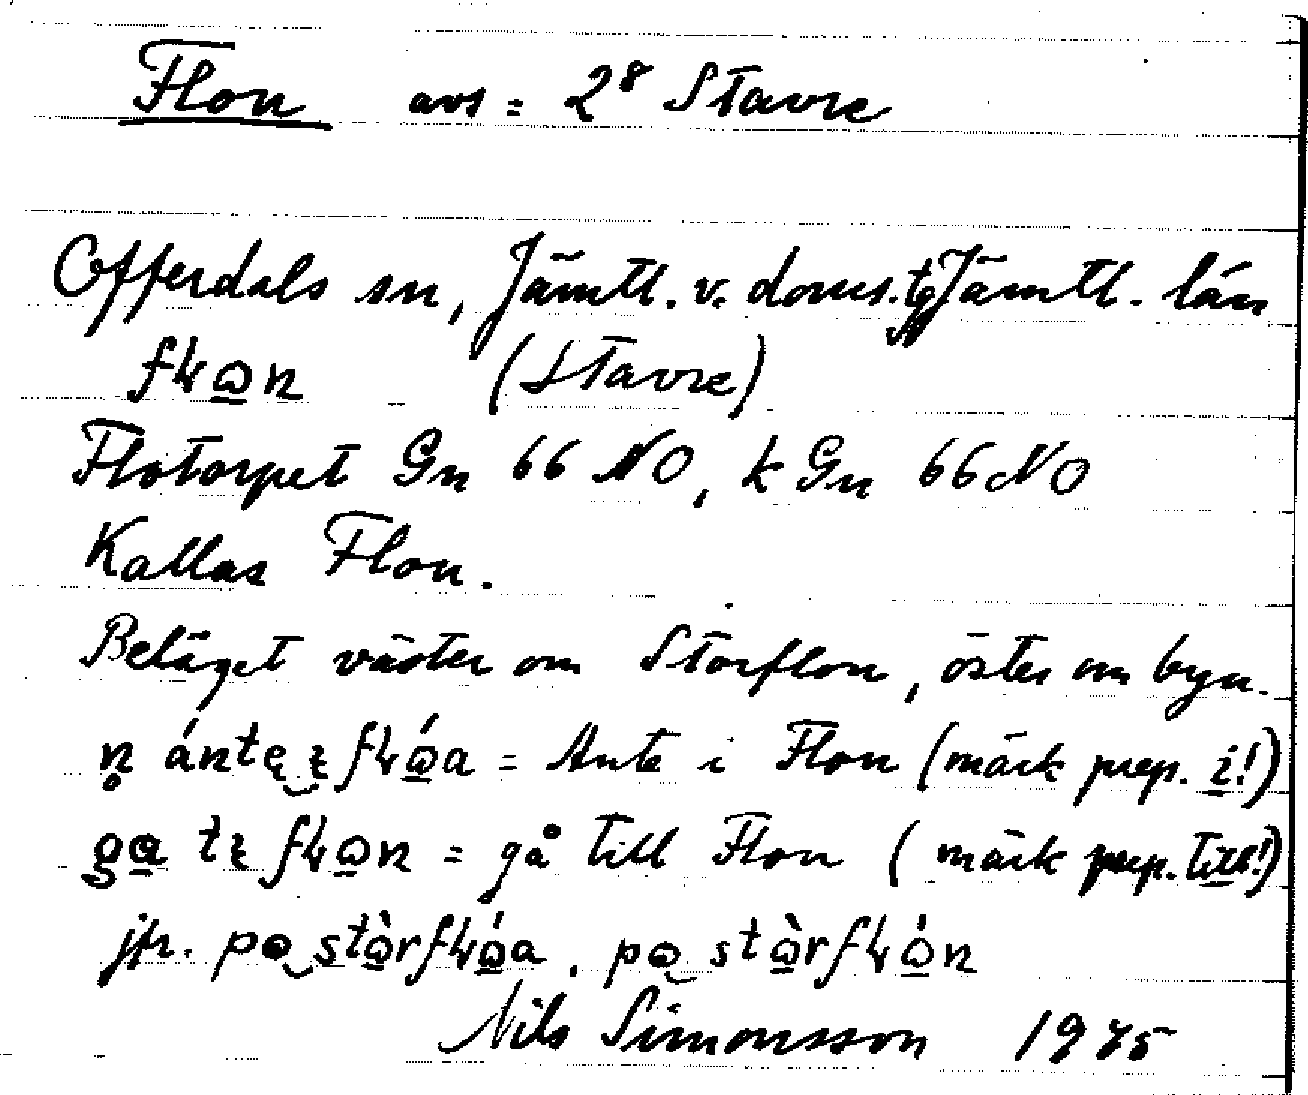 Flon avs = 2⁸ Stavre
Offerdals sn, Jämtl. v. doms. Jämtl. län
fłꞷn (Stavre)
Flotorpet Gn 66 NO, k Gn 66 NO
Kallas Flon.
Beläget väster om Storflon, öster om byn.
n̥ ántę ɩ fłꞷ́a = Ante i Flon (märk prep. i!)
ga tɩ fłꞷn = gå till Flon (märk prep. till!)
jfr. pꞷ stꞷ̀rfłꞷ́a, pꞷ stꞷ̀rfłꞷ́n
Nils Simonsson 1975